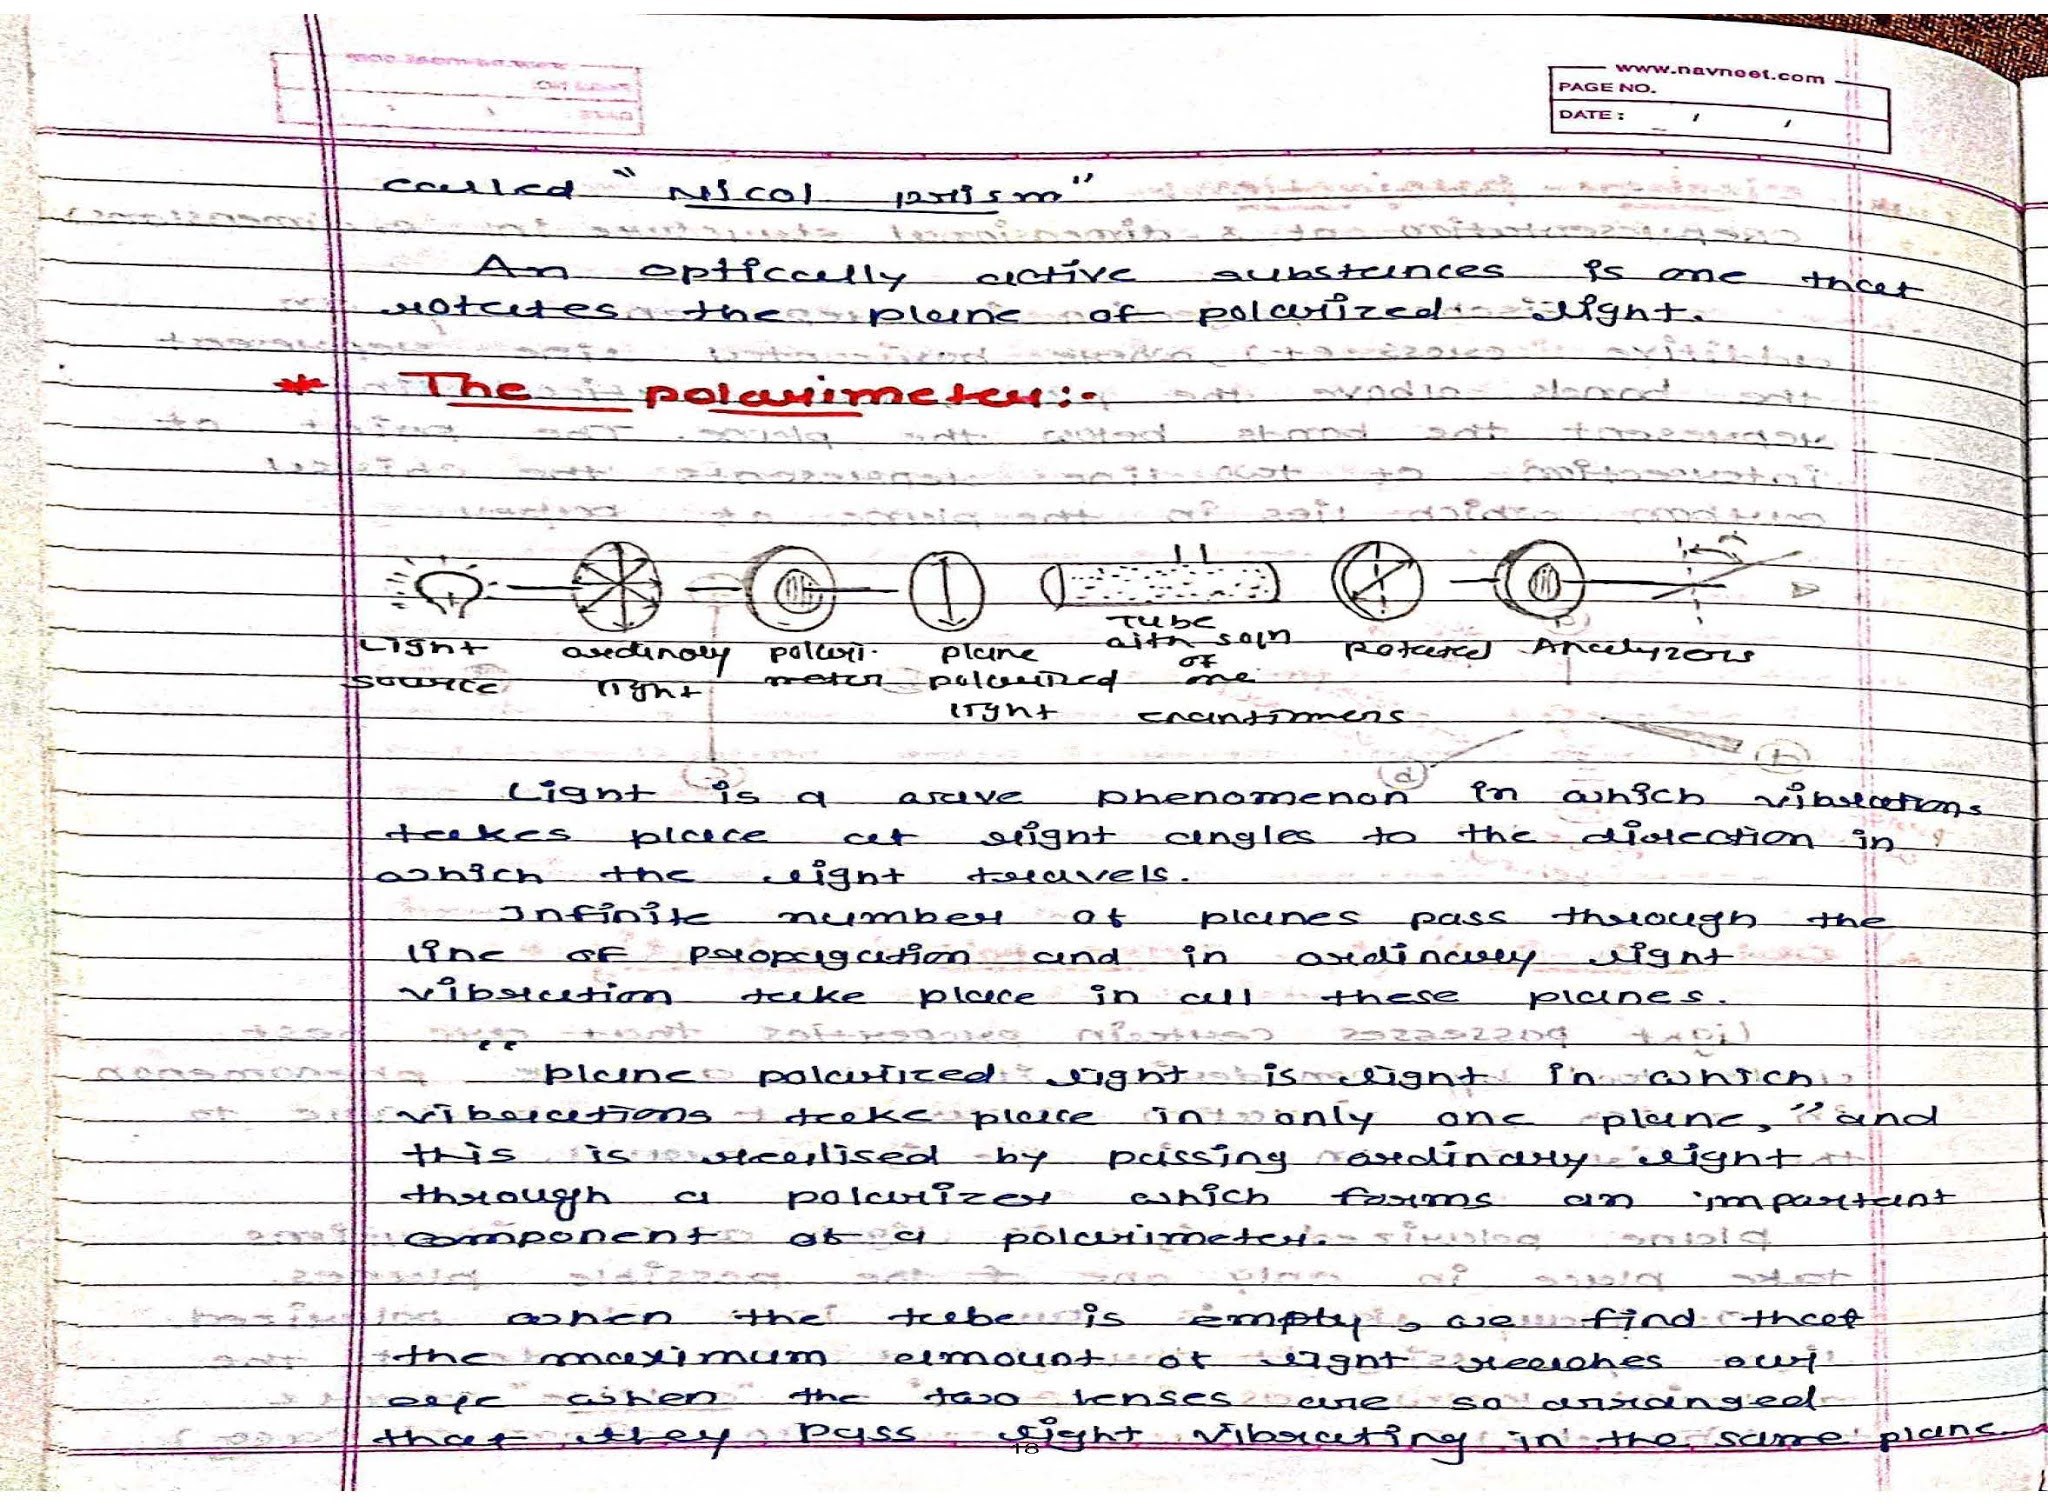 www.navneet.com
PAGE NO.
DATE : / /
called "Nicol prism"
An optically active substances is one that
rotates the plane of polarized light.
* The polarimeter:-
Light source
ordinary light
polari-meter
plane polarized light
Tube with soln of one enantiomers
Rotated
Analyzers
Light is a wave phenomenon in which vibrations
takes place at right angles to the direction in
which the light travels.
Infinite number of planes pass through the
line of propagation and in ordinary light
vibration take place in all these planes.
"plane polarized light is light in which
vibrations take place in only one plane," and
this is realised by passing ordinary light
through a polarizer which forms an important
component of a polarimeter.
when the tube is empty, we find that
the maximum amount of light reaches our
eye when the two lenses are so arranged
that they pass light vibrating in the same plane.
18